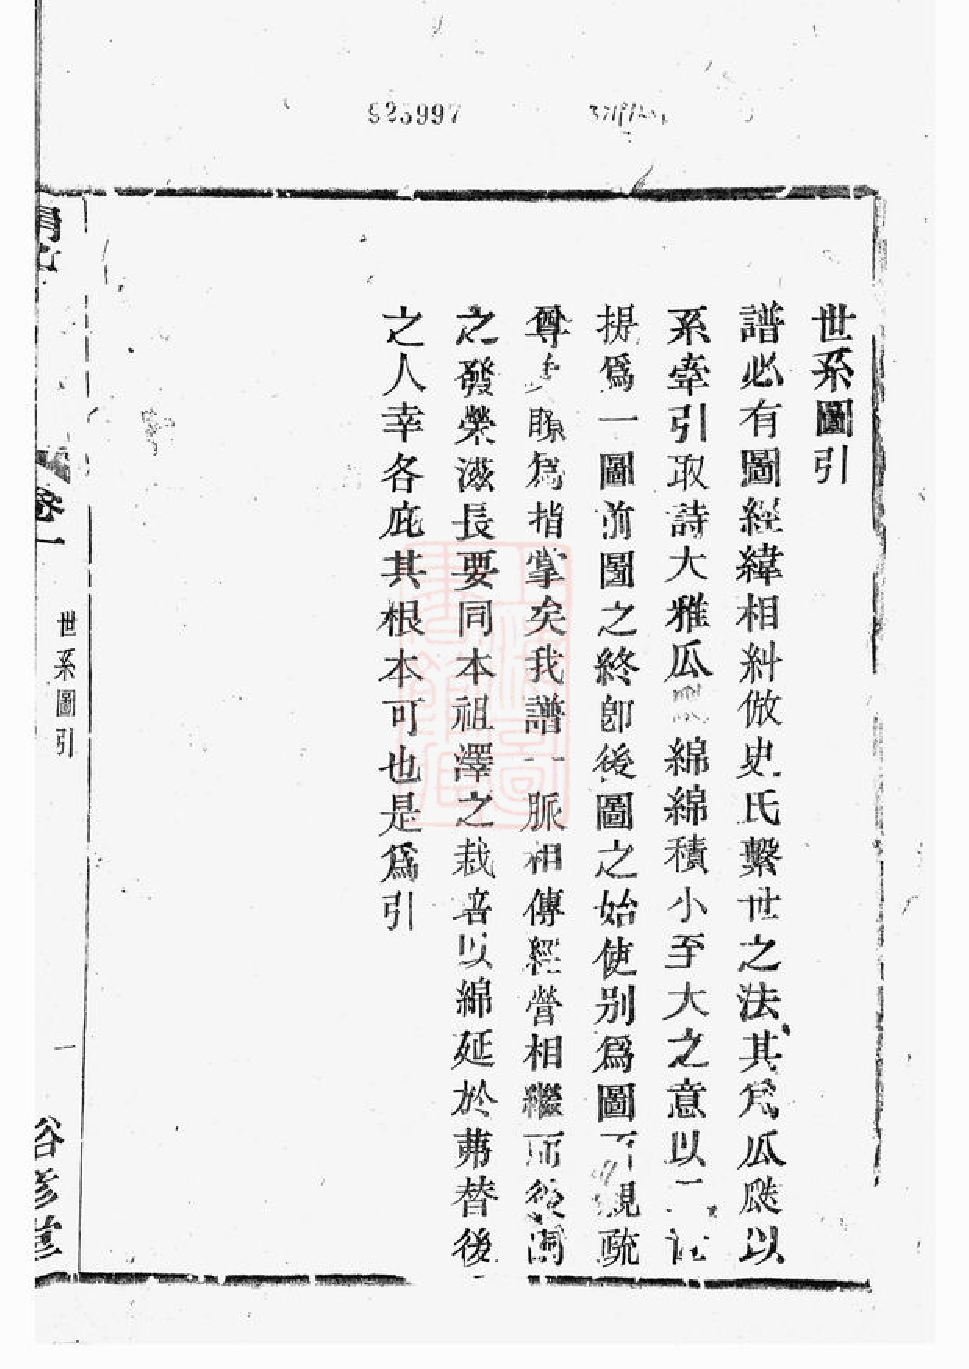 925997
世系圖引
譜必有圖經緯相糾倣史氏繫世之法其爲瓜瓞以
系牽引取詩大雅瓜綿綿積小至大之意以二
提爲一圖前圖之終卽後圖之始使別爲圖親疏
尊聯爲指掌矣我譜一脈相傳經營相繼而後
之發榮滋長要同本祖澤之栽培以綿延於弗替後
之人幸各庇其根本可也是爲引
卷一
世系圖引
一
裕彥堂